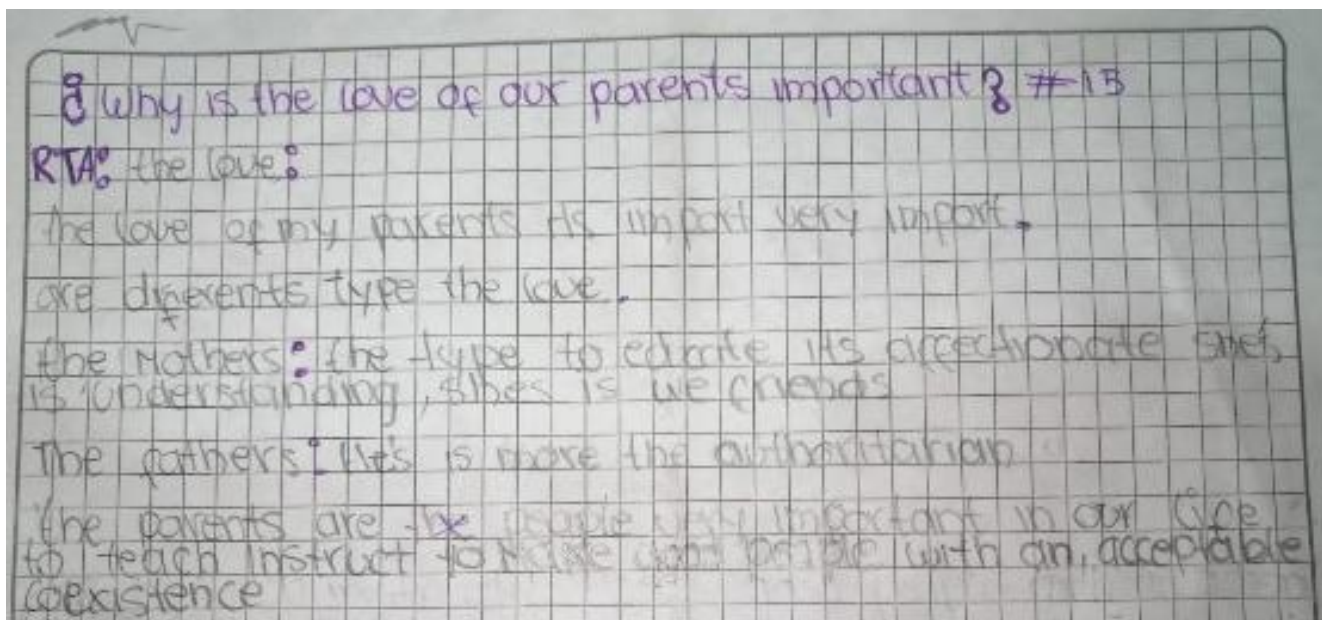 ¿Why is the love of our parents important? #15
RTA: the love:
The love of my parents its import very import.
are diferents type the love.
the Mothers: the type to educate its affectionate she's
is understanding, shes is we friends
The fathers: He's is more the authoritarian
the parents are the people very important in our life
to teach instruct to make good people with an, acceptable
coexistence